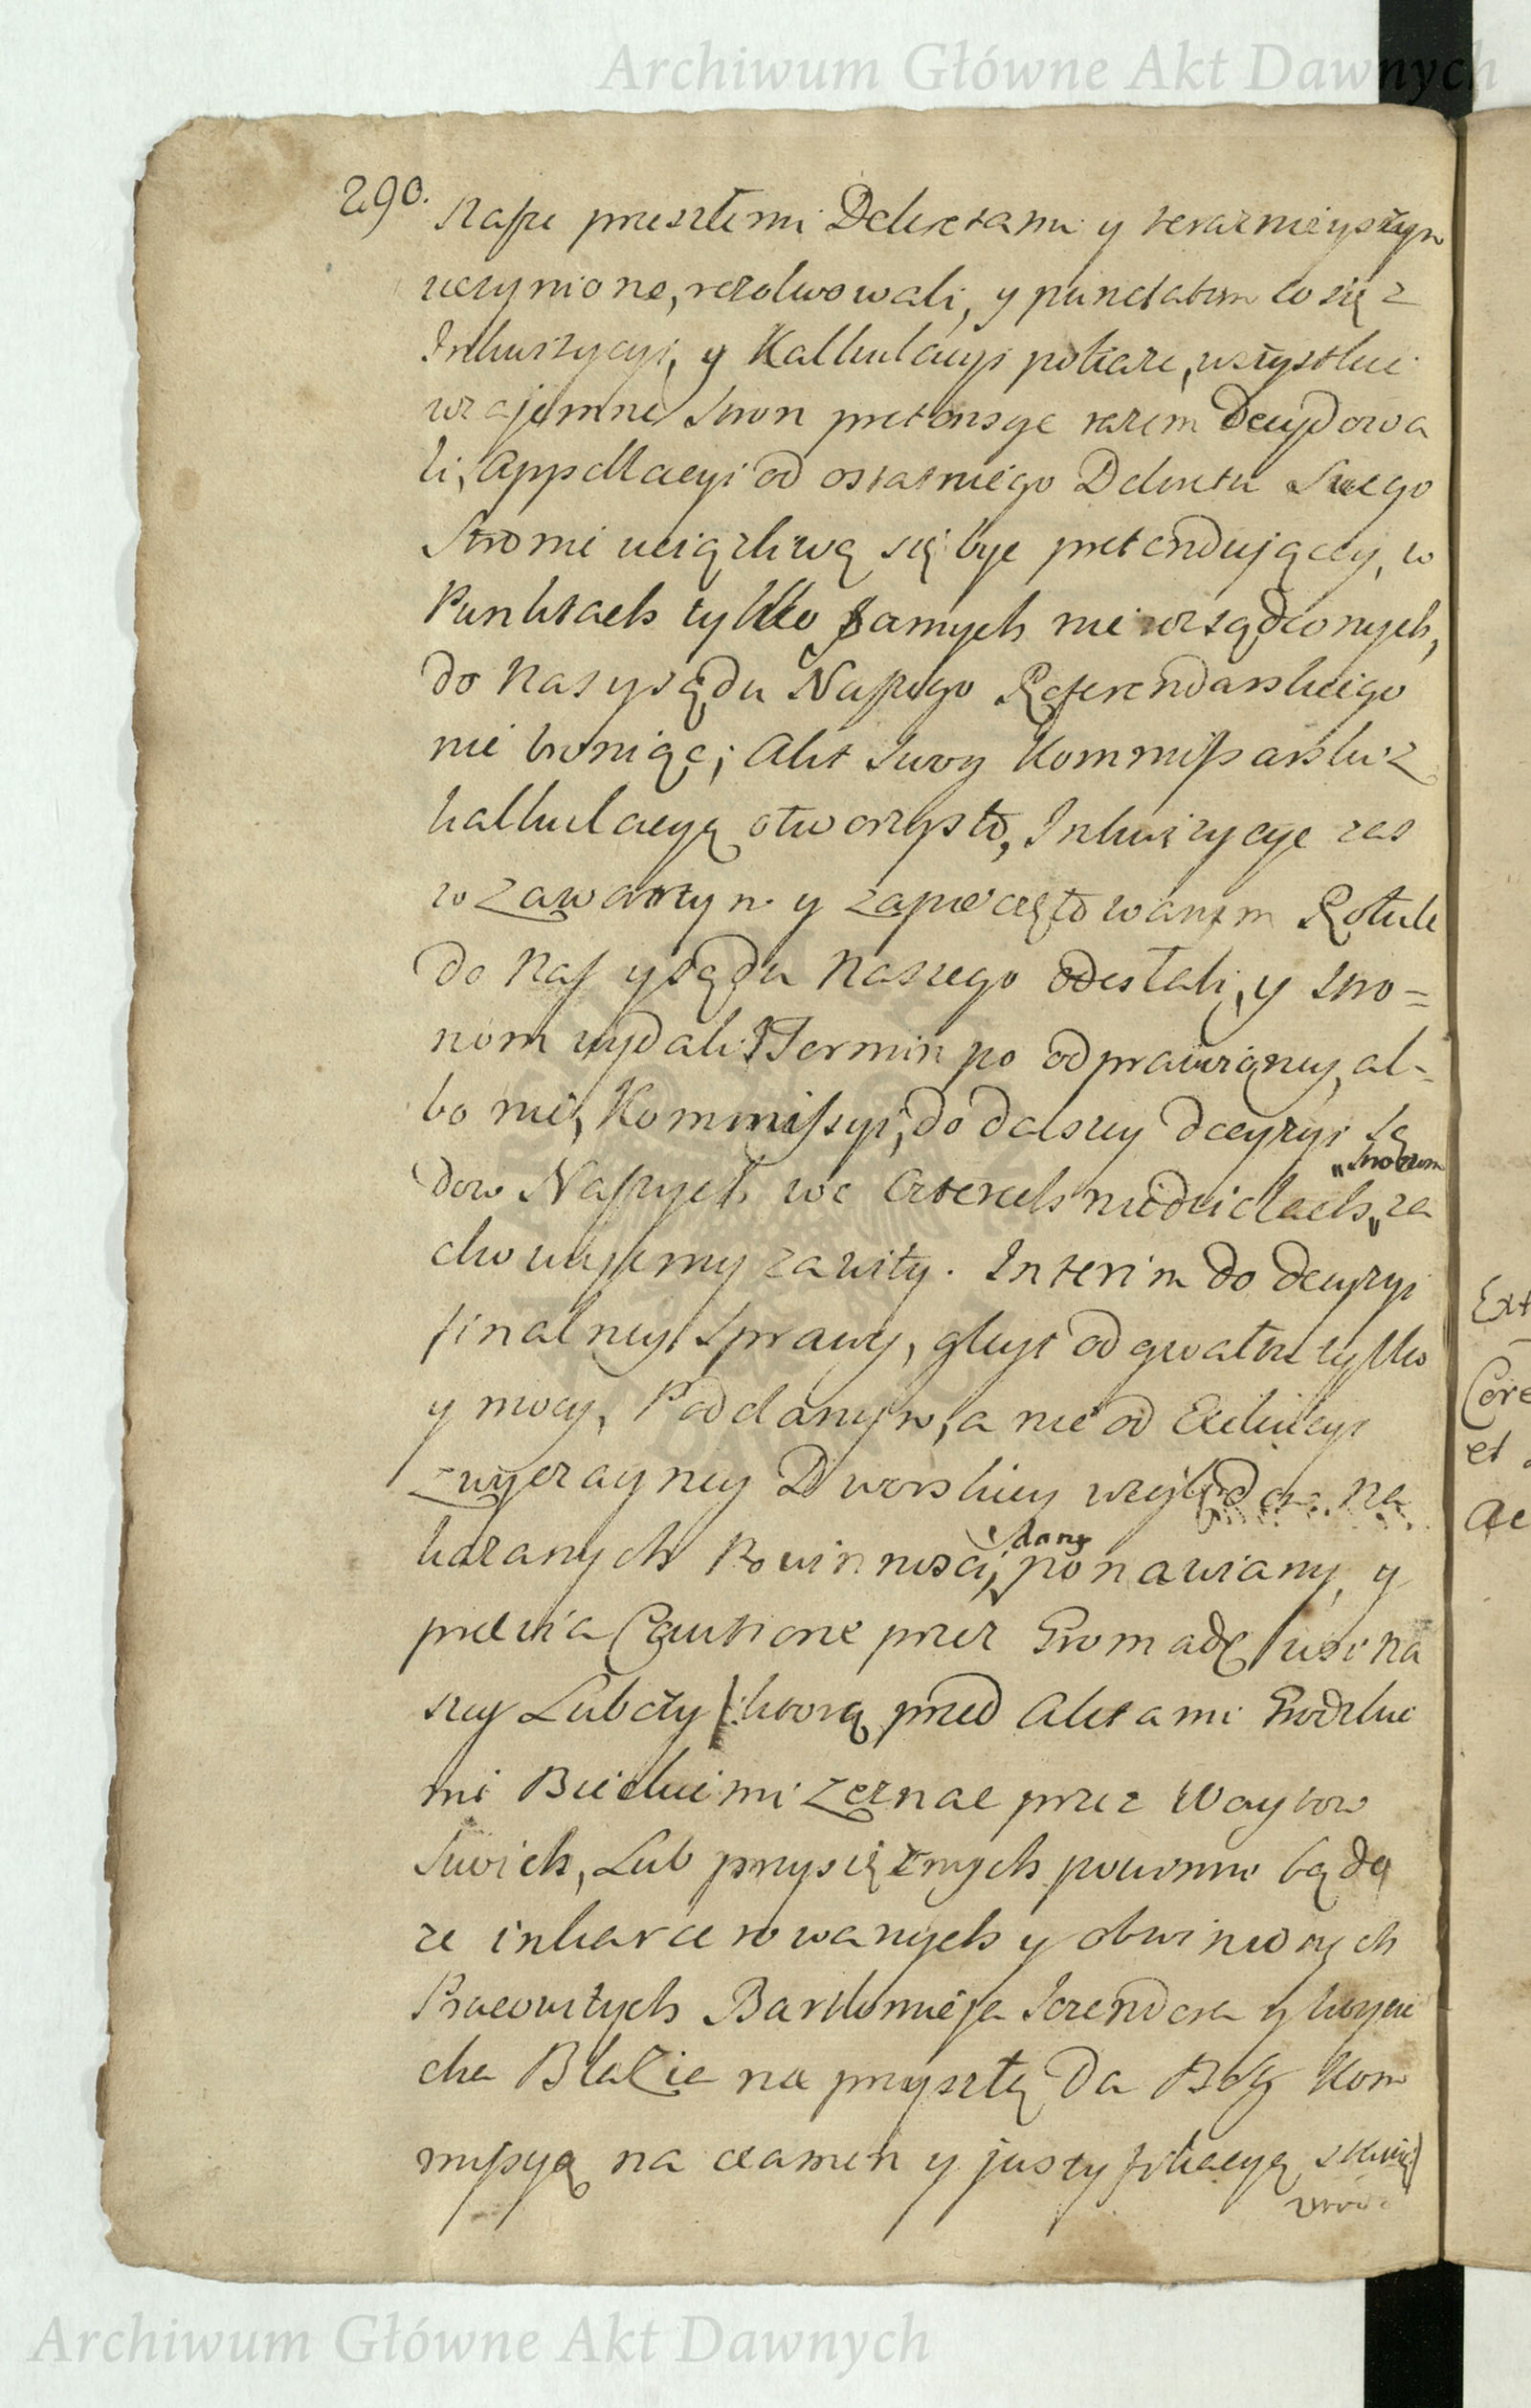 Archiwum Główne Akt Dawnych
290.
Nasze przeszłemi Dekretami y teraznieyszym
uczynione, rezolwowali, y punctatim co się z
Inkwizycyi, y Kalkulacyi pokaze, wszystkie
wzajemne stron pretensye razem Decydowa
li, Appellacyi od ostatniego Dekretu Swego
Stronie uciązliwą się bydz pretendującey, w
Punktach tylko samych nie osądzonych,
do Nas y sądu Naszego Referendarskiego
nie broniąc; Akt Swoy Kommissarski z
kalkulacyą otworzysto, Inkwizycye zas
w zawartym y zapieczętowanym Rotule
do Nas y sądu Naszego odesłali, y stro=
nom wydali: Termin po odprawioney, al-
bo nie, Kommissyi, do dalszey decyzyi Są
dow Naszych we czterech niedzielach, „stronom
za
chowujemy zawity. Interim do decyzyi
finalney Sprawy, gleyt od gwałtu tylko
y mocy, Poddanym, a nie od Exekucyi
zwyczayney Dworskiey względem na
kazanych Powinnosci, dany
ponawiamy, y
praevia Cautione przez Gromadę wsi na
szey Lubczy /:ktorą przed Aktami Grodzkie
mi Bieckiemi zeznac przez Waytow
Swich, Lub przysięznych powinni będą
ze inkarcerowanych y obwinionych
Pracowitych Bartłomieja Jerendera y Woycie
cha Blazia na przyszłą Da Bog Kom
missyą na examen y justyfikacyą stawią
Ext
Core
et
Ac
Archiwum Główne Akt Dawnych